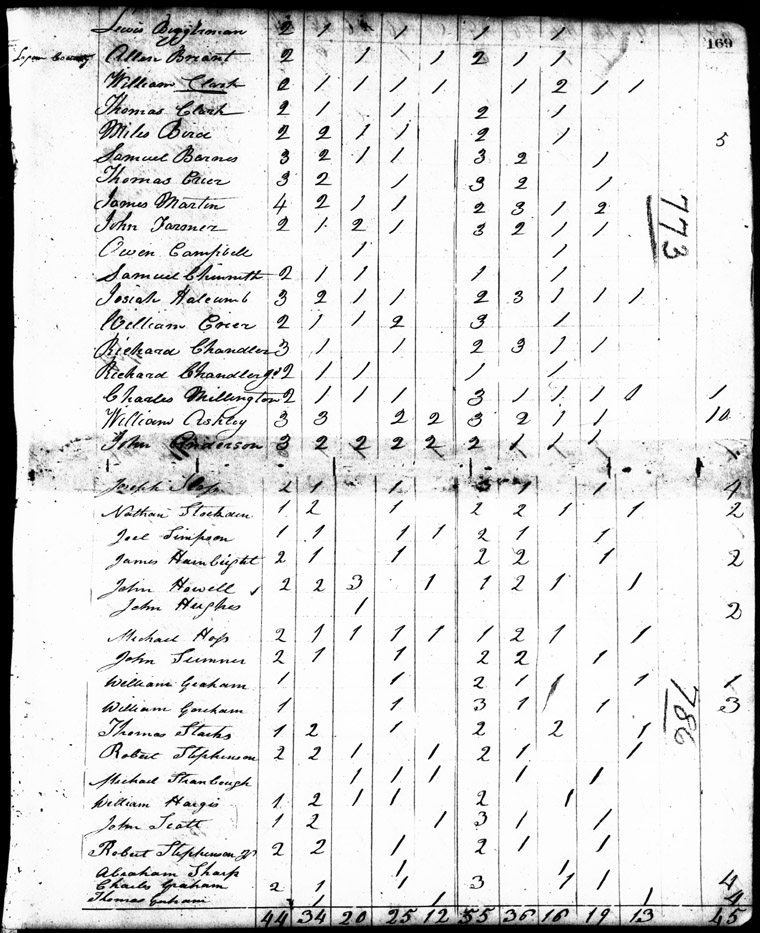 Lewis 2 1 1 1 1
169
Logan County Allen Briant 2 1 1 2 1 1
William Clark 2 1 1 1 1 1 2 1 1
Thomas Clark 2 1 1 2 1
Miles Bird 2 2 1 1 2 1 5
Samuel Barnes 3 2 1 1 3 2 1
Thomas Crier 3 2 1 3 2 1
James Martin 4 2 1 1 2 3 1 2
773
John Farmer 2 1 2 1 3 2 1 1
Owen Campbell 1 1
Samuel 2 1 1 1 1
Josiah Halcumb 3 2 1 1 2 3 1 1 1
William Crier 2 1 1 2 3 1
Richard Chandler 3 1 1 2 3 1 1
Richard Chandler Jr 2 1 1 1 1
Charles Millington 2 1 1 1 3 1 1 1 1 1
William Ashley 3 3 2 2 3 2 1 1 10
John Anderson 3 2 2 2 2 2 1 1 1
Joseph 2 1 1 1 1 4
Nathan 1 2 1 2 2 1 1 2
Joel Simpson 1 1 1 1 2 1 1
James Hambright 2 1 1 2 2 1 2
John Howell 2 2 3 1 1 2 1 1
John Hughes 1 2
Michael Hoss 2 1 1 1 1 1 2 1 1
John Sumner 2 1 1 2 2 1
William Graham 1 1 2 1 1 1 1
786
William Gorham 1 1 3 1 1 3
Thomas Starks 1 2 1 2 2 1
Robert Stephenson 2 2 1 1 2 1 1
Michael Stranbough 1 1 1 1 1
William Hargis 1 2 1 1 2 1
John Scott 1 2 1 3 1 1
Robert Stephenson Jr 2 2 1 2 1 1
Abraham Sharp 1 1
Charles Graham 2 1 1 3 1 1 4
Thomas Graham 1 1 1 4
44 34 20 25 12 55 36 16 19 13 45